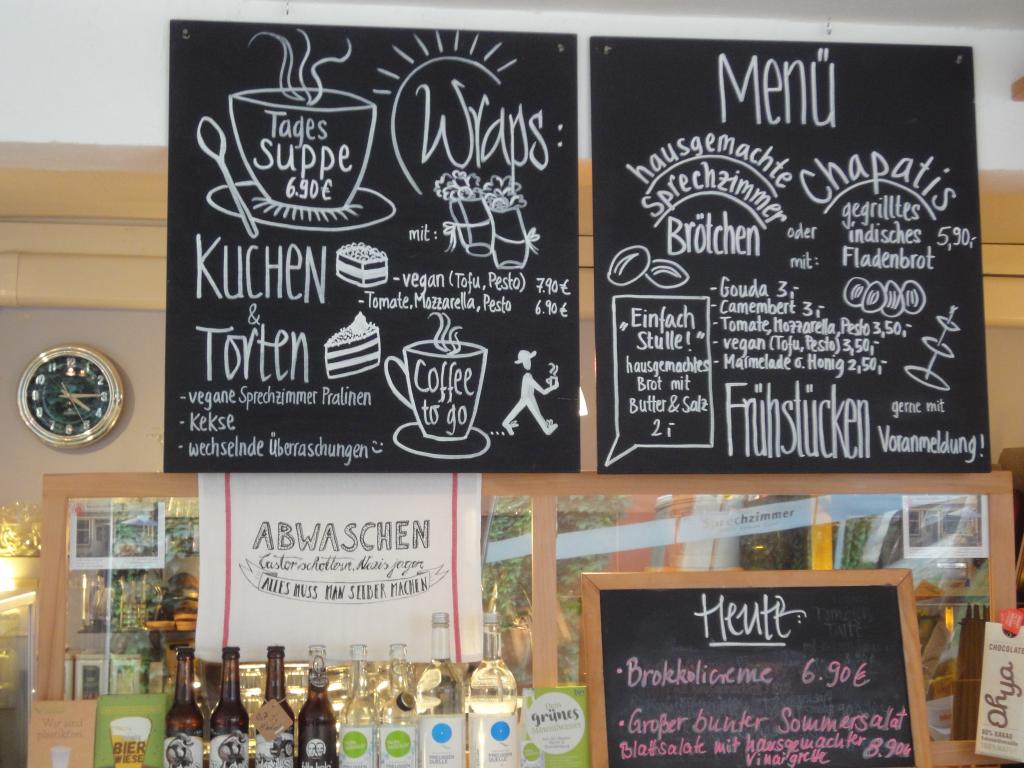 Tages
Suppe
6.90€
Wraps:
mit:
- vegan (Tofu, Pesto) 7.90€
- Tomate, Mozzarella, Pesto 6.90€
KUCHEN
&
Torten
- vegane Sprechzimmer Pralinen
- Kekse
- wechselnde Überraschungen
Coffee
to go
Menü
hausgemachte
Sprechzimmer
Brötchen
oder
mit:
Chapatis
gegrilltes
indisches 5,90,-
Fladenbrot
- Gouda 3,-
- Camembert 3,-
- Tomate, Mozzarella, Pesto 3,50,-
- vegan (Tofu, Pesto) 3,50,-
- Marmelade o. Honig 2,50,-
"Einfach
Stulle!"
hausgemachtes
Brot mit
Butter & Salz
2,-
Frühstücken gerne mit
Voranmeldung!
ABWASCHEN
Castor schottern, Nazis jagen
ALLES MUSS MAN SELBER MACHEN
Sprechzimmer
Heute:
• Brokkolicreme 6.90€
• Großer bunter Sommersalat
Blattsalate mit hausgemachter 8.90€
Vinaigrette
Wir sind
BIER
WIESE
grünes
CHOCOLATE
Ohya